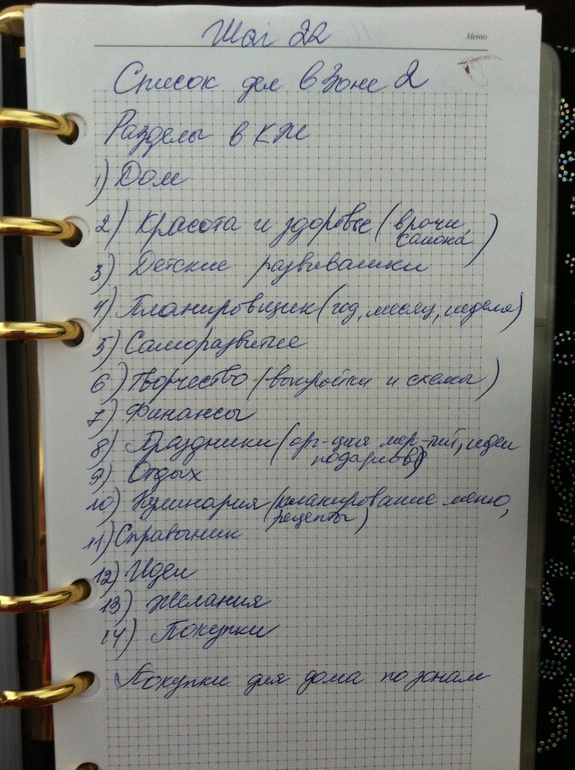 Шаг 22
Memo
Список дел в Зоне 2
Разделы в КЖ
1) Дом
2) Красота и здоровье (врачи,
салона)
3) Детские развивашки
4) Планировщик (год, месяц, неделя)
5) Саморазвитие
6) Творчество (выкройки и схемы)
7) Финансы
8) Праздники (орг-ция мер-тий, идеи
подарков)
9) Отдых
10) Кулинария (планирование меню,
рецепты)
11) Справочник
12) Идеи
13) Желания
14) Покупки
Покупки для дома по зонам